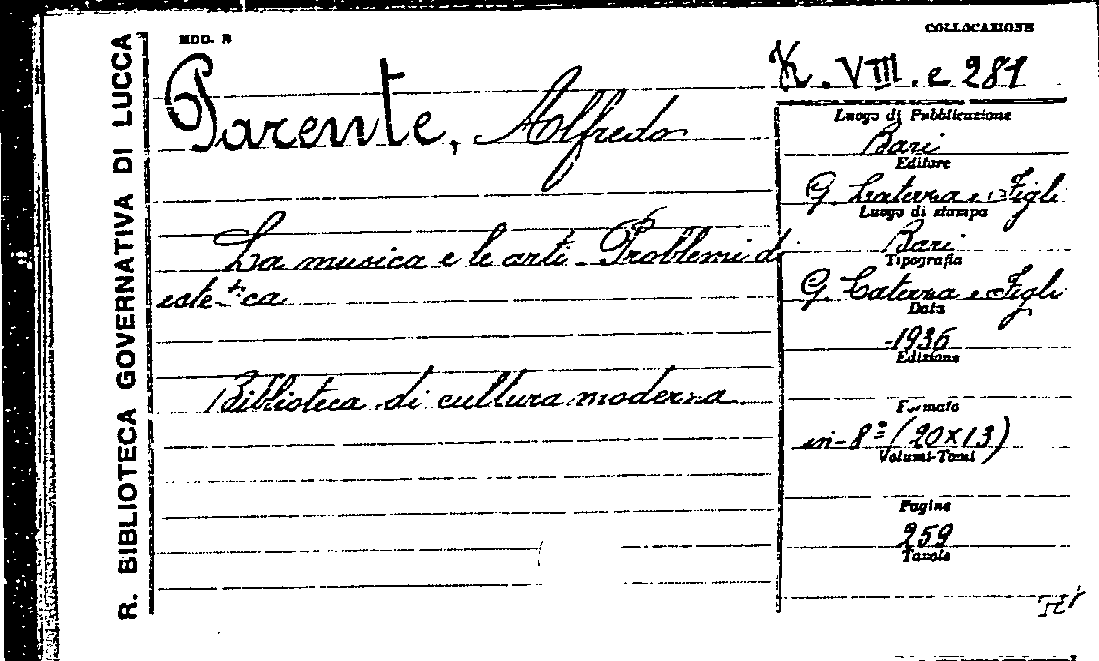 R. BIBLIOTECA GOVERNATIVA DI LUCCA
MOD. B
COLLOCAZIONE
K. VIII. e 281
Parente, Alfredo
La musica e le arti - Problemi di
estetica
Biblioteca di cultura moderna
Luogo di Pubblicazione
Bari
Editore
G. Laterza e Figli
Luogo di stampa
Bari
Tipografia
G. Laterza e Figli
Data
1936
Edizione
Formato
in-8º (20x13)
Volumi-Tomi
Pagine
259
Tavole